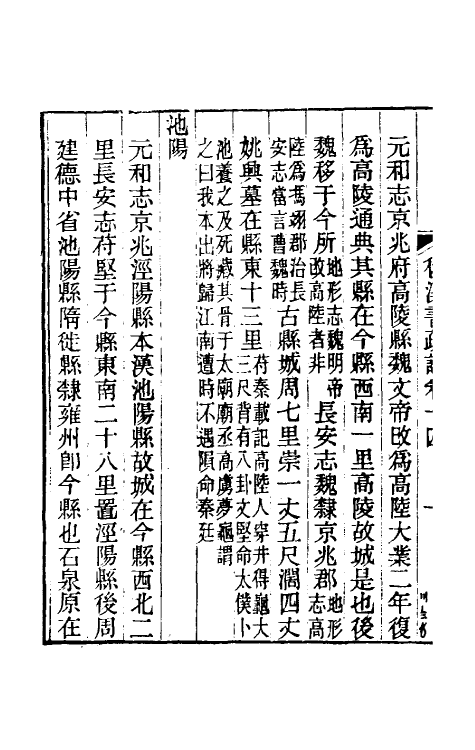 後漢書疏證卷十四
一
元和志京兆府高陵縣魏文帝改爲高陸大業二年復
爲高陵通典其縣在今縣西南一里高陵故城是也後
魏移于今所地形志魏明帝改高陸者非長安志魏隸京兆郡地形志高
陸爲馮翊郡治長安志當言曹魏時古縣城周七里崇一丈五尺濶四丈
姚興墓在縣東十三里苻秦載記高陸人穿井得龜大三尺背有八卦文堅命太僕卜
池養之及死藏其骨于太廟廟丞高虜夢龜謂之曰我本出將歸江南遭時不遇隕命秦廷
池陽
元和志京兆涇陽縣本漢池陽縣故城在今縣西北二
里長安志苻堅于今縣東南二十八里置涇陽縣後周
建德中省池陽縣隋徙縣隸雍州卽今縣也石泉原在